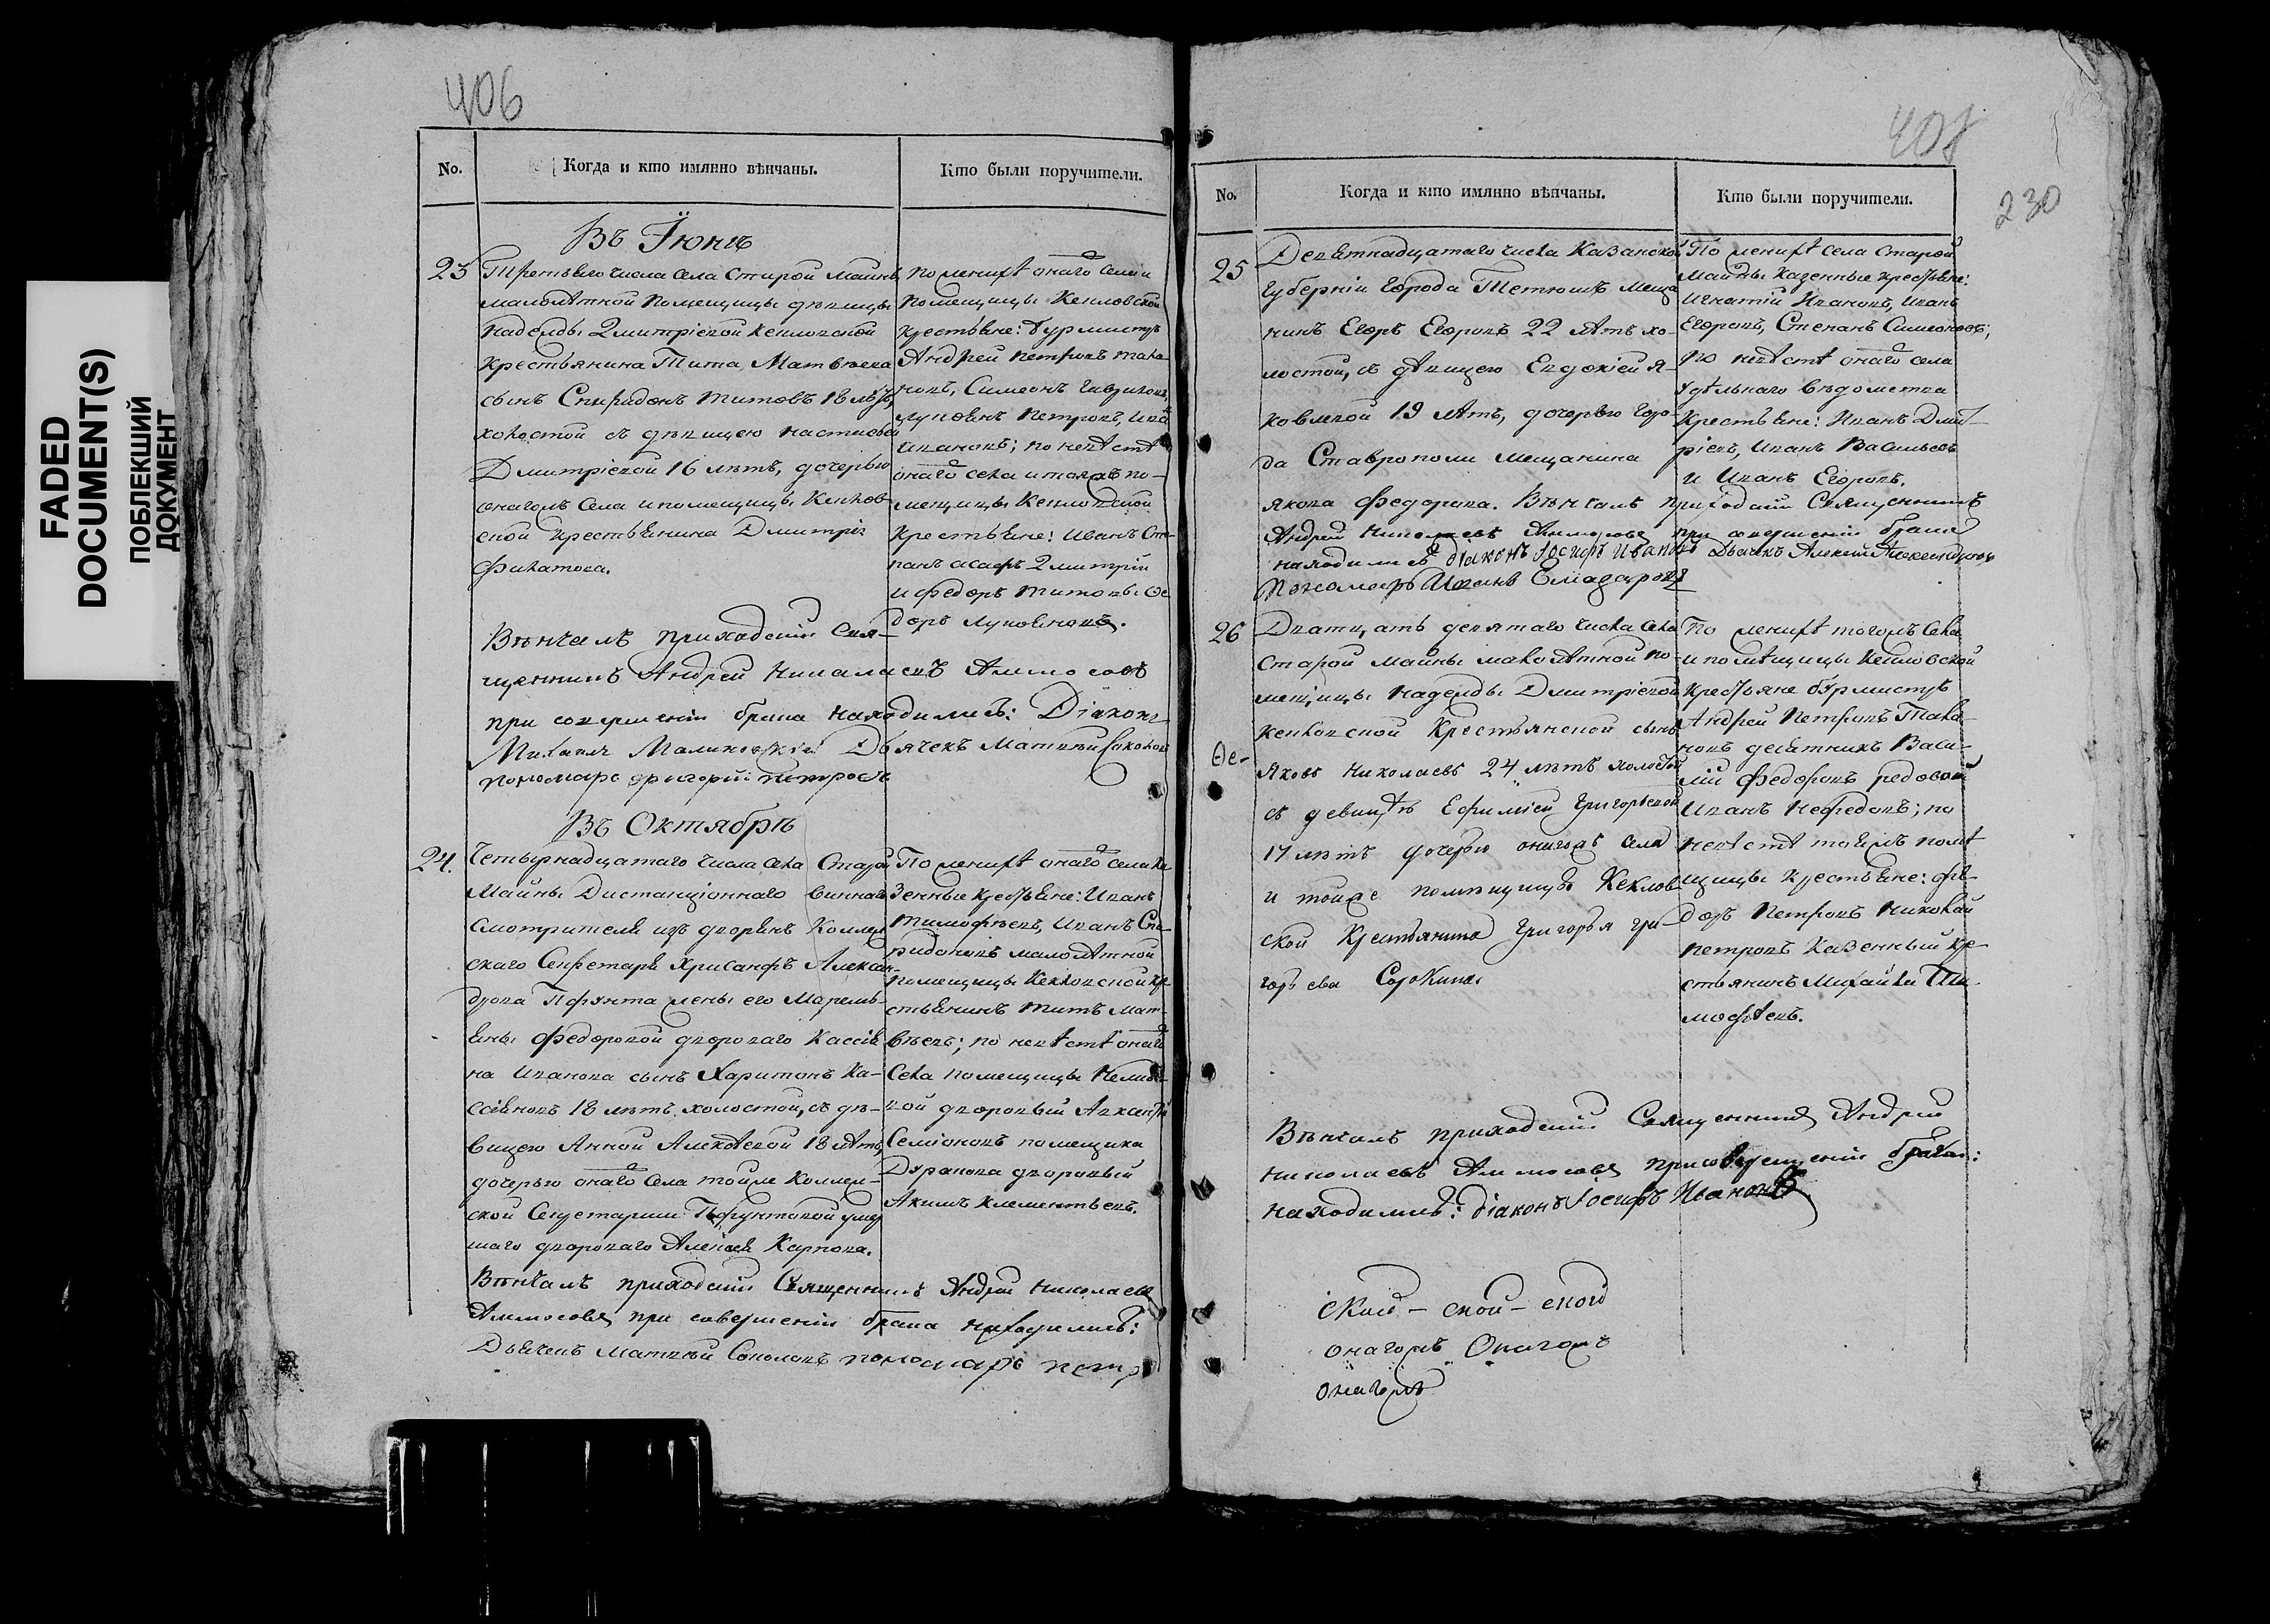 FADED
DOCUMENT(S)
ПОБЛЕКШИЙ
ДОКУМЕНТ
406
No.
Когда и кто имянно вѣнчаны.
Кто были поручители.
Въ Іюнѣ
23
Третьяго числа села Старой Майны
малолѣтной Помещицы дѣвицы
Надежды Дмитріевой
Крестьянина Тита Матвѣева
сынъ Спиридонъ Титовъ 18 лѣтъ,
холостой съ дѣвицею Настасьей
Дмитріевой 16 лѣтъ, дочерью
онагожъ села и помещицы
ской крестьянина Дмитрія
Филатова.
По женихѣ онаго села и
Помещицы
крестьяне: Бурмистръ
Андрей Петровъ
Симеонъ Гавриловъ,
Петровъ,
Ивановъ; по невѣстѣ
онаго села и тояжъ по-
мещицы
Крестьяне: Иванъ
Дмитрій
и Федоръ Титовы Фе
доръ
Вѣнчалъ приходскій Свя-
щенникъ Андрей Николаевъ Аммосовъ
при совершеніи брака находились: Діаконъ
Михаилъ Малиновскій Дьячекъ Матвѣй Соколовъ
пономарь Григорій Петровъ
Въ Октябрѣ
24.
Четырнадцатаго числа села Старой
Майны Дистанціоннаго виннаго
смотрителя изъ дворянъ Коллеж
скаго Секретаря Хрисанфъ Алексан-
дрова жены его
Федоровой двороваго Кассія
на Иванова сынъ Харитонъ Ка-
ссіяновъ 18 лѣтъ холостой, съ дѣ-
вицею Анной Алексѣевой 18 лѣтъ,
дочерью онаго села тойже Коллеж-
ской Секретарши умер
шаго двороваго Алексѣя Карпова.
По женихѣ онаго села Ка
зенные крестьяне: Иванъ
Тимофѣевъ, Иванъ Спи-
ридоновъ малолѣтной
помещицы кре
стьянинъ Титъ Мат-
вѣевъ; по невѣстѣ онаго
села помещицы
вой дворовый Авксентій
Семіоновъ помещика
Дуранова дворовый
Акимъ Клементьевъ.
Вѣнчалъ приходскій Священникъ Андрей Николаевъ
Аммосовъ при совершеніи брака находились:
Дьячекъ Матвѣй Соколовъ пономарь
230
No.
Когда и кто имянно вѣнчаны.
Кто были поручители.
25
Девятнадцатаго числа Казанской
Губерніи Города Тетюшъ Меща
нинъ Егоръ Егоровъ 22 лѣтъ хо-
лостой, съ дѣвицею Евдокіей Я-
ковлевой 19 лѣтъ, дочерью Горо-
да Ставрополя мещанина
Якова Федорова. Вѣнчалъ приходскій Священникъ
Андрей Николаевъ Аммосовъ при совершеніи брака
находились діаконъ Іосифъ Ивановъ Дьячекъ Алексій Александровъ
Пономарь Иванъ
По женихѣ села Старой
Майны казенные крестьяне:
Игнатій Ивановъ, Иванъ
Егоровъ, Степанъ Симеоновъ;
по невѣстѣ онаго села
Удѣльнаго вѣдомства
Крестьяне: Иванъ Дмит-
ріевъ, Иванъ Васильевъ
и Иванъ Егоровъ.
26
Дватцать девятаго числа села
Старой Майны малолѣтной по-
мещицы Надежды Дмитріевой
Крестьянской сынъ
Яковъ Николаевъ 24 лѣтъ холостой
съ девицѣю Ефиміей Григорьевой
17 лѣтъ дочерью онагожъ села
и тойже помѣщицы
ской Крестьянина Григорья Гри-
горьева Сорокина.
По женихѣ тогожъ села
и помѣщицы
крестьяне бурмистръ
Андрей Петровъ
десятникъ Васи-
лій Федоровъ редовой
Иванъ Нефедовъ; по
невѣстѣ тояжъ помѣ
щицы крестьяне: Фе-
доръ Петровъ Николай
Петровъ Казенный кре-
стьянинъ Михайла Ти-
мофѣевъ.
Ѳе-
Вѣнчалъ приходскій Священникъ Андрей
Николаевъ Аммосовъ при совершеніи брака:
находились: діаконъ Іосифъ Ивановъ
ской - ской - ской
онагожъ Онагожъ
онагожъ